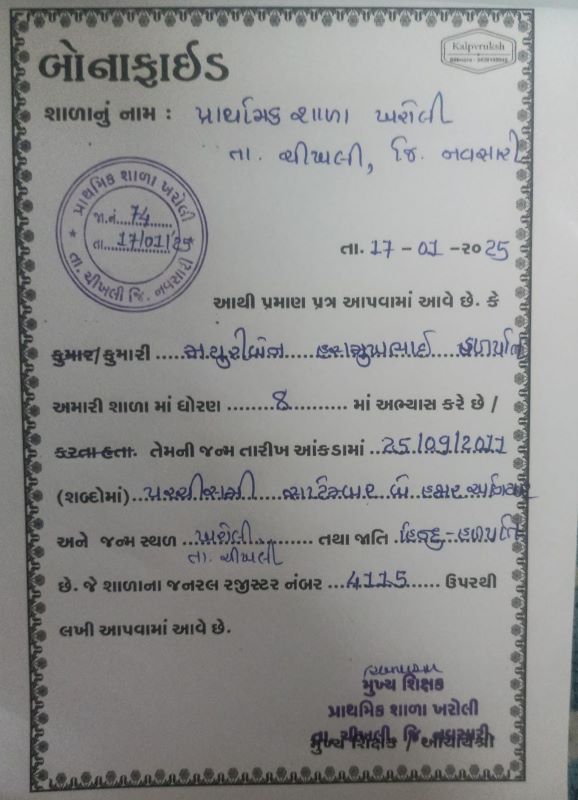 Kalpvruksh
બોનાફાઈડ
શાળાનું નામ : પ્રાથમિક શાળા ખરોલી
તા. ચીખલી, જિ. નવસારી
પ્રાથમિક શાળા ખરોલી
જા.નં. 74
તા. 17/01/25
તા. ચીખલી જિ. નવસારી
તા. 17 - 01 - ૨૦25
આથી પ્રમાણ પત્ર આપવામાં આવે છે. કે
કુમાર/કુમારી ....મયુરીબેન.... હસમુખભાઈ હળપતિ
અમારી શાળા માં ધોરણ ........8......... માં અભ્યાસ કરે છે /
કરતા હતા. તેમની જન્મ તારીખ આંકડામાં ..25/09/2011
(શબ્દોમાં) ..પચ્ચીસમી સપ્ટેમ્બર બે હજાર અગિયાર
અને જન્મ સ્થળ ..ખરોલી.......... તથા જાતિ .હિન્દુ-હળપતિ
તા. ચીખલી
છે. જે શાળાના જનરલ રજીસ્ટર નંબર ...4115....... ઉપરથી
લખી આપવામાં આવે છે.
મુખ્ય શિક્ષક
પ્રાથમિક શાળા ખરોલી
તા. ચીખલી, જિ. નવસારી
મુખ્ય શિક્ષક / આચાર્યશ્રી